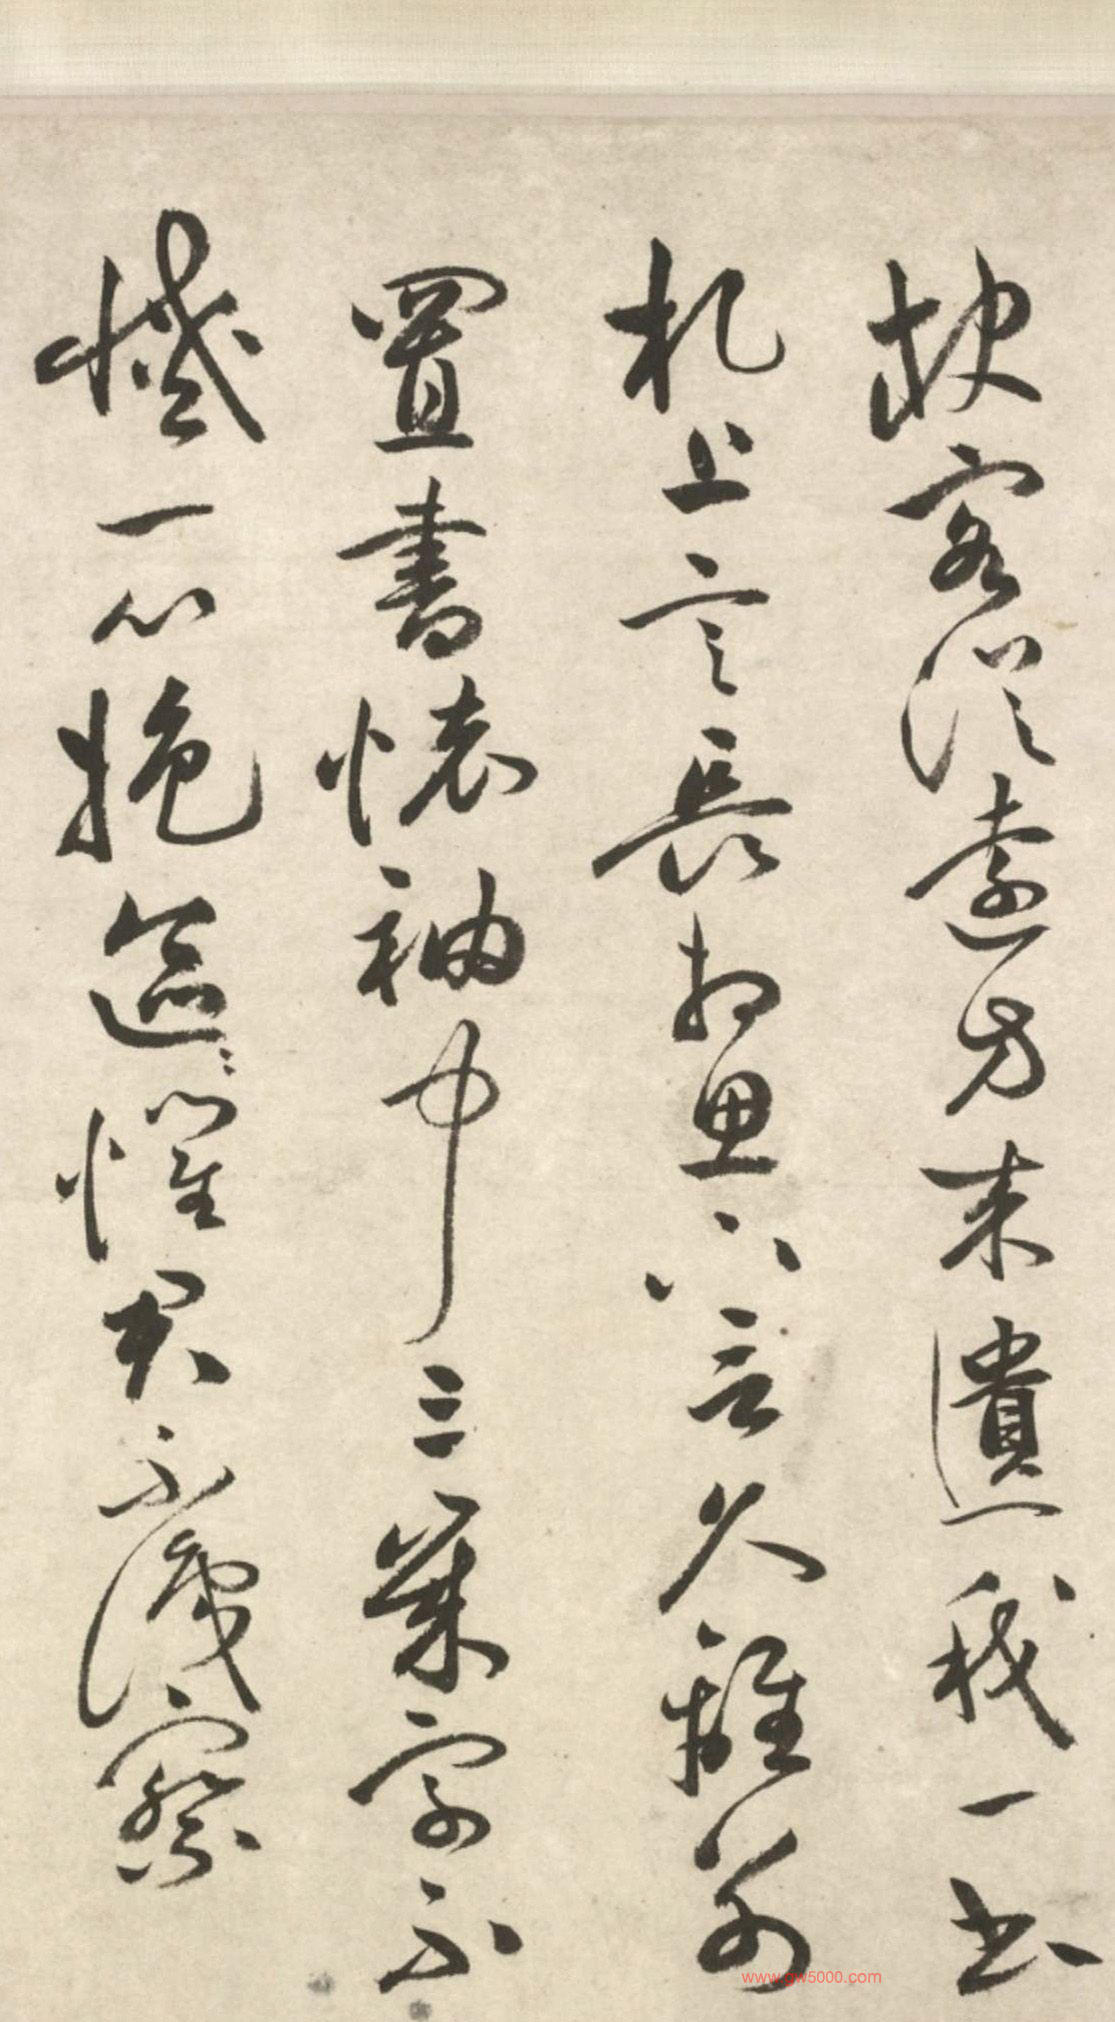 缺客從遠方來遺我一書
札上言長相思下言久離別
置書懷袖中三歲字不
滅一心抱區〻懼君不識察
www.gw5000.com